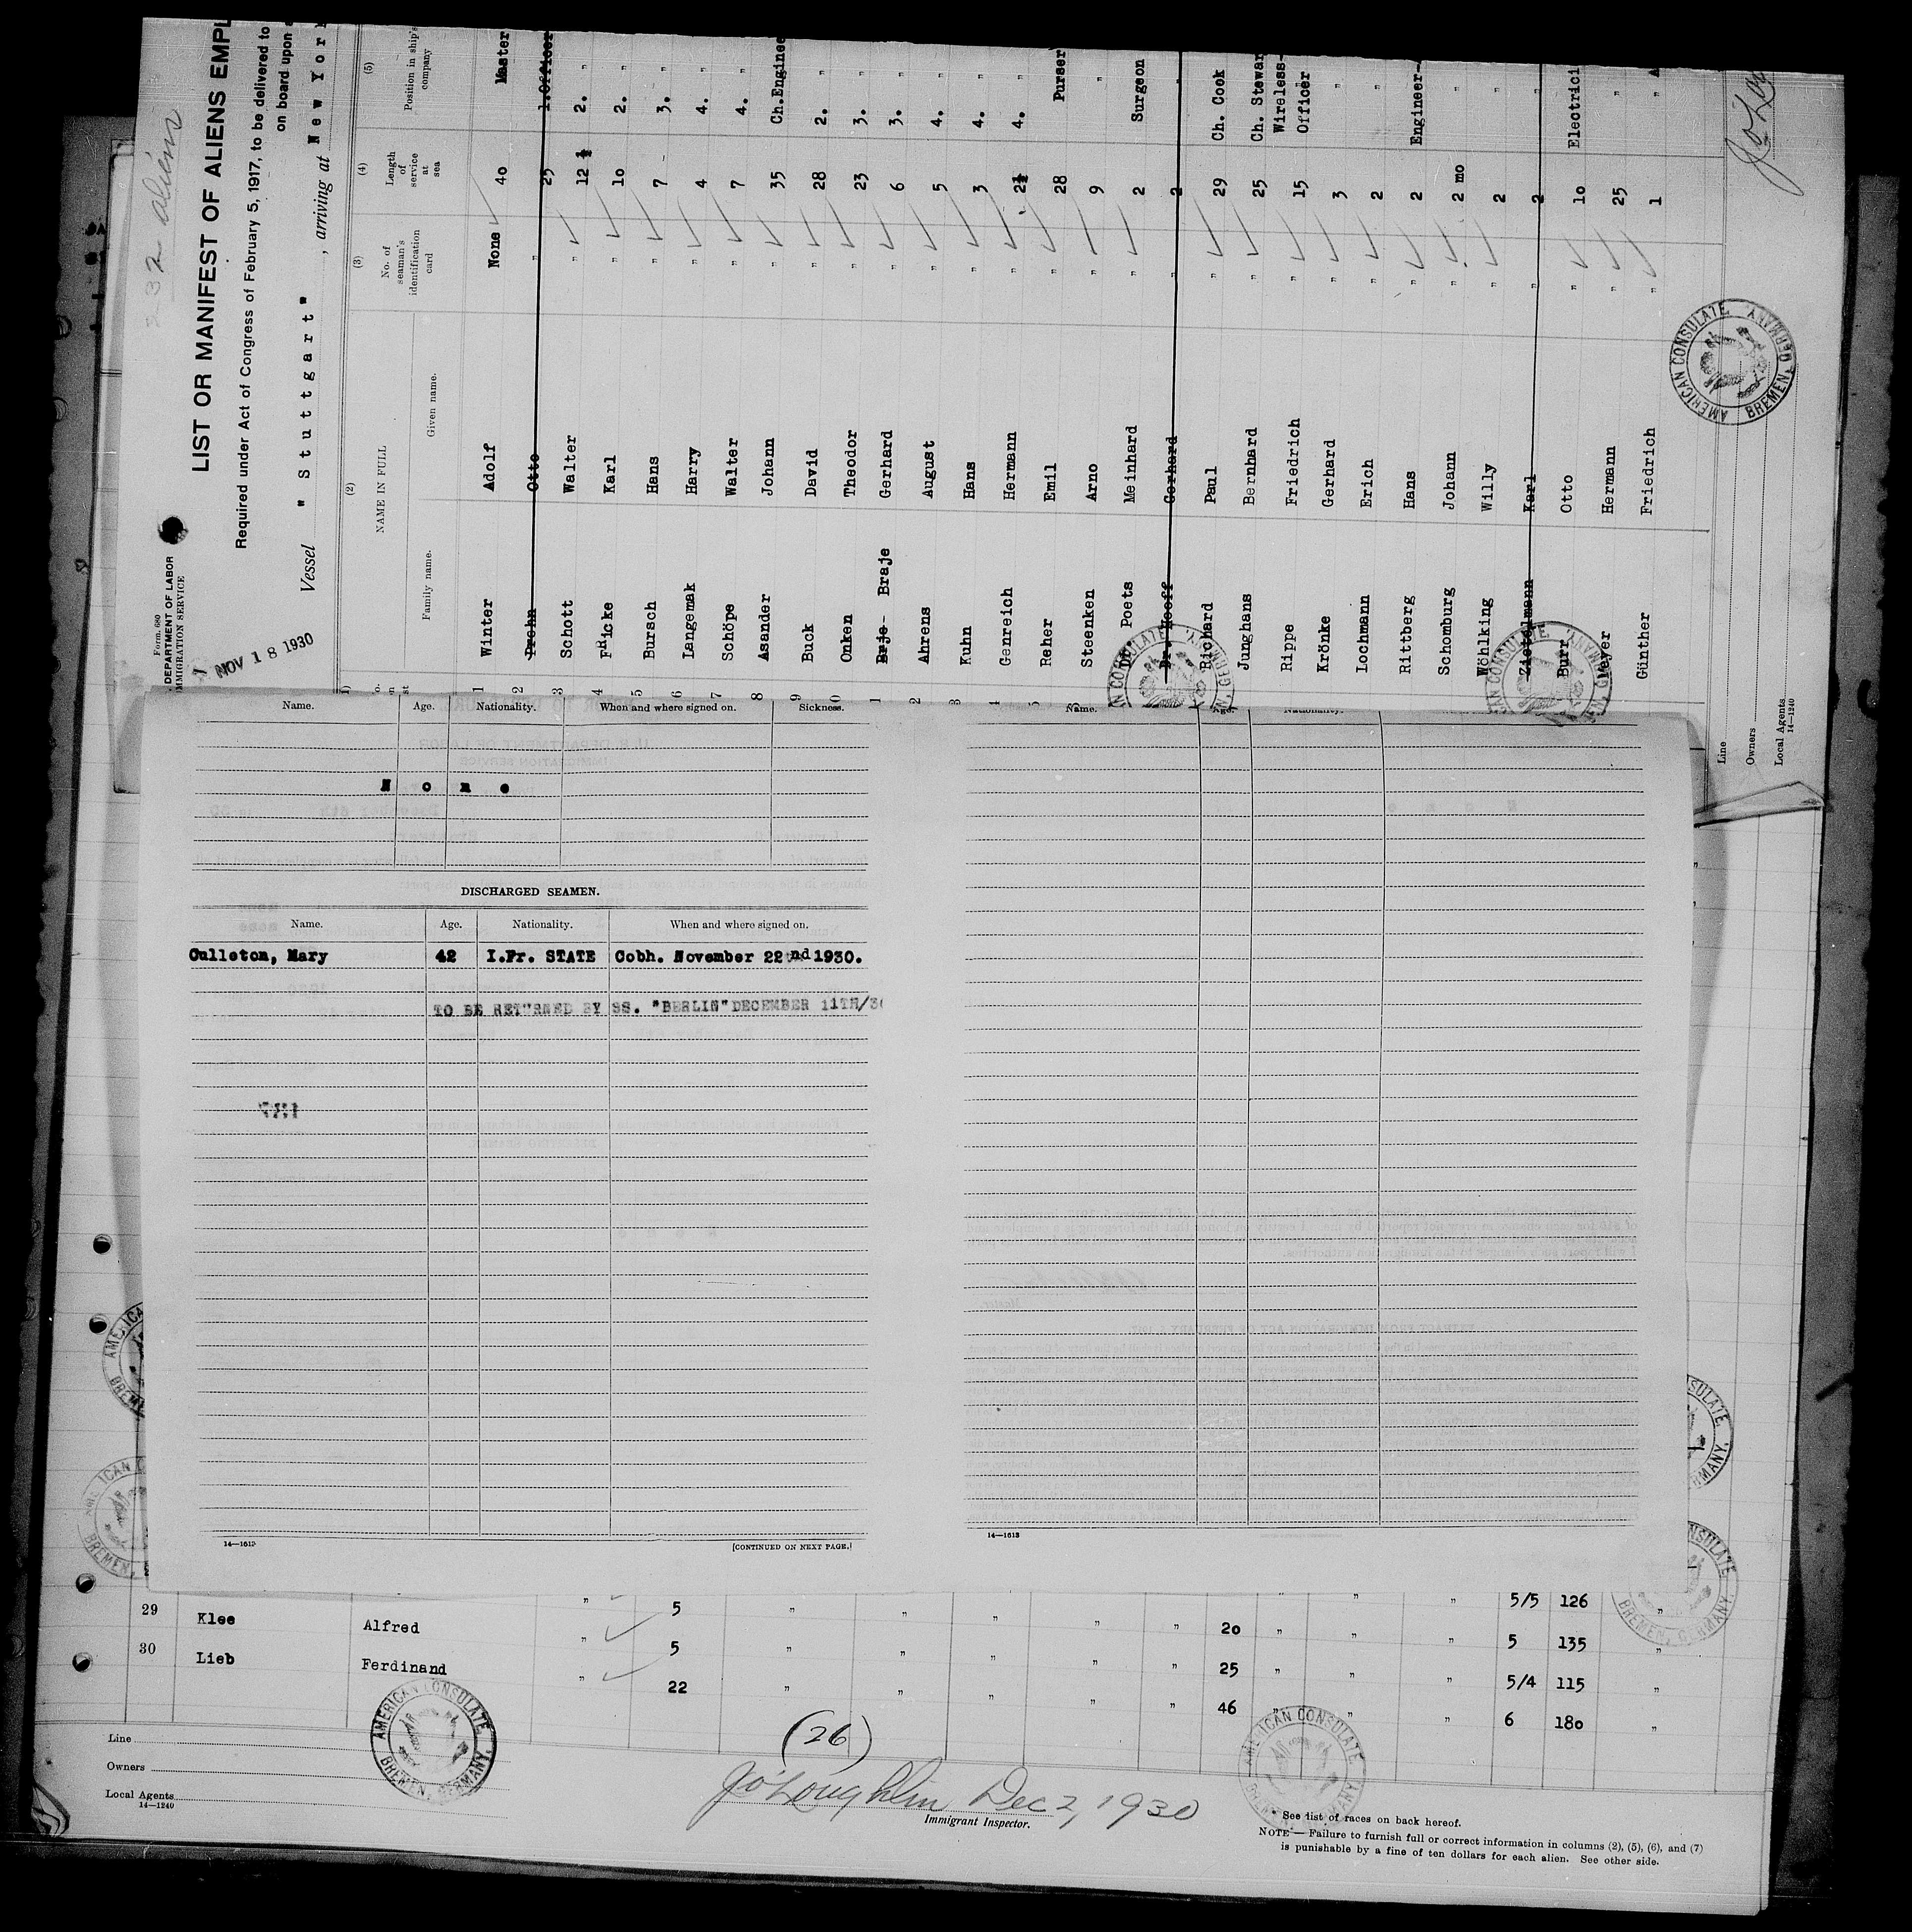 232 aliens
Form 680
DEPARTMENT OF LABOR
IMMIGRATION SERVICE
NOV 18 1930
LIST OR MANIFEST OF ALIENS EMPL
Required under Act of Congress of February 5, 1917, to be delivered to
on board upon
Vessel " Stuttgart " , arriving at New York
(2) (3) (4) (5)
NAME IN FULL No. of seaman's identification card Length of service at sea Position in ship's company
Family name. Given name.
1 Winter Adolf None 40 Master
2 Prehn Otto " 25 1.Officer
3 Schott Walter " 12½ 2. "
4 Fricke Karl " 10 2. "
5 Bursch Hans " 7 3. "
6 Langemak Harry " 4 4. "
7 Schöpe Walter " 7 4. "
8 Asander Johann " 35 Ch.Enginee
9 Buck David " 28 2. "
0 Onken Theodor " 23 3. "
1 Brje- Braje Gerhard " 6 3. "
2 Ahrens August " 5 4. "
3 Kuhn Hans " 3 4. "
4 Genreich Hermann " 2½ 4. "
5 Reher Emil " 28 Purser
Steenken Arno " 9 "
Dr. Poets Meinhard " 2 Surgeon
Dr. Hooff Gerhard " 2 "
Richard Paul " 29 Ch. Cook
Junghans Bernhard " 25 Ch. Stewar
Rippe Friedrich " 15 Wireless-Officer
Krönke Gerhard " 3 "
Lochmann Erich " 2 "
Rittberg Hans " 2 Engineer-
Schomburg Johann " 2 mo "
Wöhking Willy " 2 "
Zietelmann Karl " 2 "
Burr Otto " 10 Electrici
Meyer Hermann " 25 "
Günther Friedrich " 1 " A
AMERICAN CONSULATE, BREMEN, GERMANY
Line
Owners
Local Agents
14—1240
Name. Age. Nationality. When and where signed on. Sickness.
None
DISCHARGED SEAMEN.
Name. Age. Nationality. When and where signed on.
Culleton, Mary 42 I.Fr. STATE Cobh. November 22nd 1930.
TO BE RETURNED BY SS. "BERLIN" DECEMBER 11TH/30
14—1612
[CONTINUED ON NEXT PAGE.]
Name. Age. Nationality.
14—1613
" 5 " " " " " " " " 5/5 126 "
29 Klee Alfred " 5 " " " " " 20 " " " 5 135 "
30 Lieb Ferdinand " 22 " " " " " 25 " " " 5/4 115 "
46 " " " 6 180 "
Line
Owners
Local Agents
14—1240
AMERICAN CONSULATE, BREMEN, GERMANY
(26)
JO'Loughlin Dec 2, 1930
Immigrant Inspector.
AMERICAN CONSULATE
See list of races on back hereof.
NOTE — Failure to furnish full or correct information in columns (2), (5), (6), and (7)
is punishable by a fine of ten dollars for each alien. See other side.